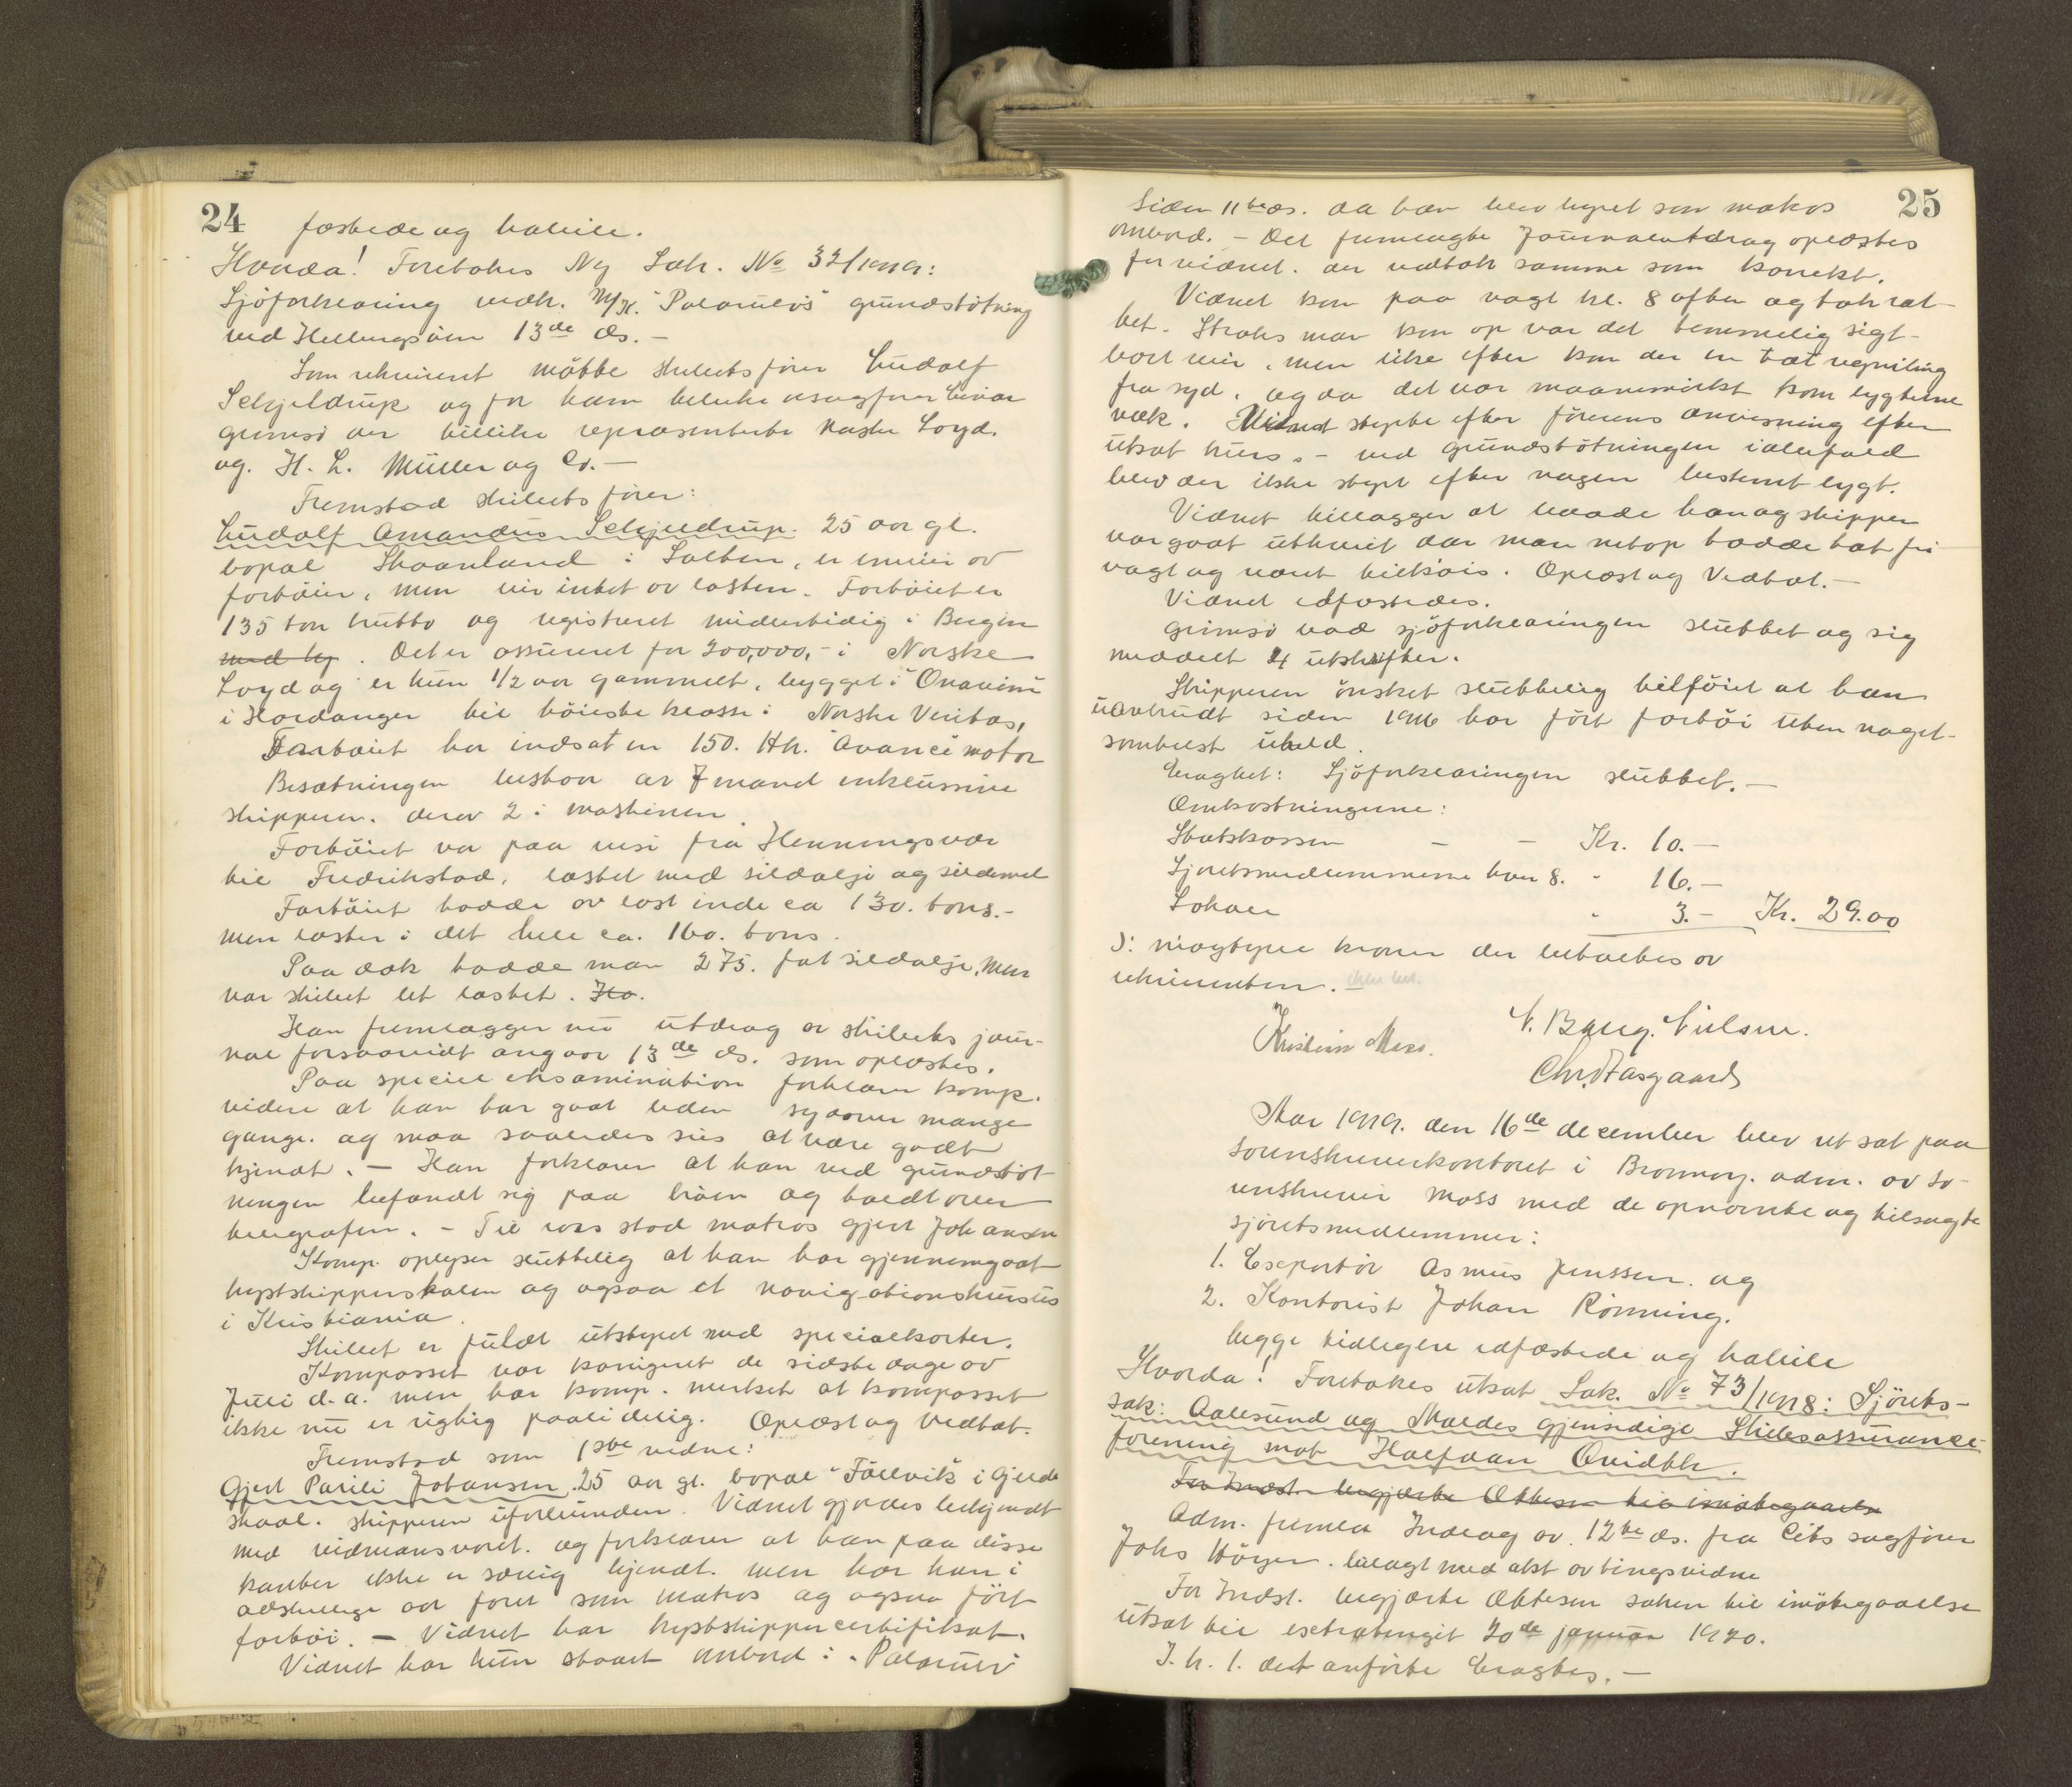 24
fæstede og habile.
Hvorda! Foretokes Ny Sak. No 32/1919:
Sjöforklaring vedk. M/K. "Polarulvs" grundstötning
ved Helligsøen 13de ds. -
Som rekvirent mötte skibets förer Ludolf
Selsjeldrup og for ham beluke sagförer Einar
Grimsö der tillike repræsenterte Norske Loyd.
og H. L. Müller og Co. -
Fremstod skibets förer:
Ludolf Amandus Selsjeldrup. 25 aar gl.
bopæl Skaanland i Salten, er eneeier av
fartöiet, men eier intet av lasten. Fartöiet er
135 ton brutto og registreret midlertidig i Bergen
med by. Det er assureret for 200,000,- i Norske
Loyd og er kun 1/2 aar gammelt, bygget i Ønavini
i Hardanger til höieste klasse i Norske Veritas,
Fartöiet har indsat en 150. Hk. "Avance" motor
Besætningen bestaar av 7 mand inklussive
skipperen. derav 2 i maskinen.
Fartöiet var paa reise fra Henningsvær
til Fredrikstad, lastet med sildolje og sildemel
Fartöiet hadde av last inde ca 130. tons. -
men laster i det hele ca. 160. tons.
Paa dæk hadde man 275. fat sildolje, men
var skibet let lastet. Ho.
Han fremlægger nu utdrag av skibets jour-
nal forsaavidt angaar 13de ds. som oplæstes.
Paa speciel eksamination forklarer komp.
videre at han har gaat leden sydover mange
gange. og maa saaledes sies at være godt
kjendt. - Han forklarer at han ved grundstöt
ningen befandt sig paa broen og holdt over
telegrafen. - Til rors stod matros Gjert Johansen
Komp. oplyser sluttelig at han har gjennemgaat
kystskipperskolen og ogsaa et navigationskursus
i Kristiania.
Skibet er fuldt utstyret med specialkarter.
Kompasset var korrigeret de sidste dage av
Juli d.a. men har komp. merket at kompasset
ikke nu er rigtig paalidelig. Oplæst og vedtat.
Fremstod som 1ste vidne:
Gjert Parili Johansen. 25 aar gl. bopæl "Föllvik" i Gilde
skaal. skipperen uforbunden. Vidnet gjordes bekjendt
med vidneansvaret. og forklarer at han paa disse
kanter ikke er særlig kjendt. men har han i
adskillige aar faret som matros og ogsaa fört
fartöi. - Vidnet har kystskippercertifikat.
Vidnet har kun staaet ombord i "Polarulv"
25
siden 11te ds. da han blev hyret som matros
ombord. - Det fremlagte Journalutdrag oplæstes
for vidnet. der vedtok samme som korrekt.
Vidnet kom paa vagt kl. 8 aften og tok rat-
tet. Straks man kom op var det temmelig sigt-
bart veir, men like efter kom der en tæt regniling
fra syd, og da det var maanemörkt kom lygterne
væk. Vidnet styrte efter förerens anvisning efter
utsat kurs. - ved grundstötningen ialfald
blev der ikke styrt efter nogen bestemt lygt.
Vidnet tillægger at baade han og skipper
var godt uthvilt da man netop hadde hat fri-
vagt og været tilköis. Oplæst og Vedtat. -
Vidnet edfæstedes.
Grimsö bad sjöforklaringen sluttet og sig
meddelt 4 utskrifter.
Skipperen önsket sluttelig tilföiet at han
uavbrudt siden 1916 har fört fartöi uten noget-
somhelst uheld.
Eragtet: Sjöforklaringen sluttet. -
Omkostningerne:
Statskassen - - Kr. 10. -
Sjöretsmedlemmerne hver 8. " 16. -
Lokale " 3. - Kr. 29.00
ɔ: niogtyve kroner der betaltes av
rekvirenten. -
Kristian Moss. N. Bang. Nielsen.
Chr. Aasgaard
Aar 1919. den 16de december blev ret sat paa
sorenskriverkontoret i Brønnøy. adm. av so-
renskriver Moss med de opnævnte og tilsagte
sjöretsmedlemmer:
1. Eksportör Asmus Jenssen. og
2. Kontorist Johan Rönning.
begge tidligere edfæstede og habile
Hvorda! Foretokes utsat Sak. No 73/1918: Sjörets-
sak: Aalesund og Moldes gjensidige Skibsassurance-
forening mot Halfdan Qvidth.
For Indst. begjærte Ottesen til imötegaaelse
Adm. fremla Indlæg av 12te ds. fra Cits sagförer
Johs Höyer. bilagt med akt av tingsvidne
For Indst. begjærte Ottesen saken til imötegaaelse
utsat til extratinget 20de januar 1920.
I. k. l. det anförte Eragtes. -